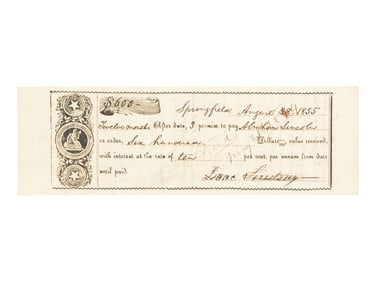 $600–
Springfield August 28 1855
Twelve months After date, I promise to pay Abraham Lincoln
or order, Six hundred Dollars value received,
with interest at the rate of ten per cent. per annum from date
until paid.
Isaac